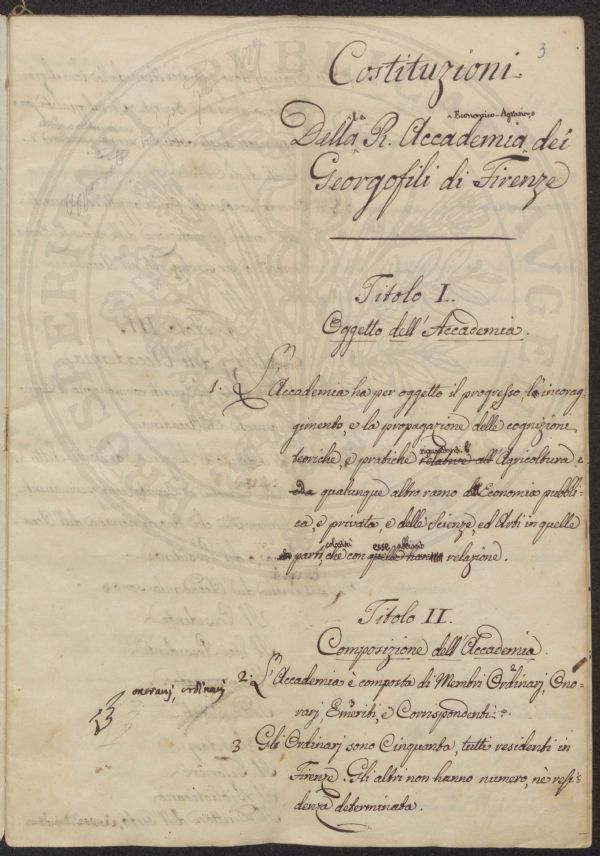 3
Costituzioni
Le
Economico-Agrario
Della R. Accademia dei
Georgofili di Firenze
Titolo I.
Oggetto dell'Accademia.
1. L'Accademia ha per oggetto il progresso, l'incorag-
gimento, e la propagazione delle cognizione
riguardanti l'
teoriche, e pratiche relative all'Agricoltura e
da qualunque altro ramo Economia pubbli-
ca, e privata, e delle Scienze, ed Arti in quelle
esse abbiano
parti, che con quelle hanno relazione.
Titolo II.
Composizione dell'Accademia.
2. L'Accademia è composta di Membri Ordinarj, Ono-
onorarj, ordinarj
rarj Emeriti, e Corrispondenti.
3 Gli Ordinarj sono Cinquanta, tutti residenti in
Firenze. Gli altri non hanno numero, nè resi-
denza determinata.